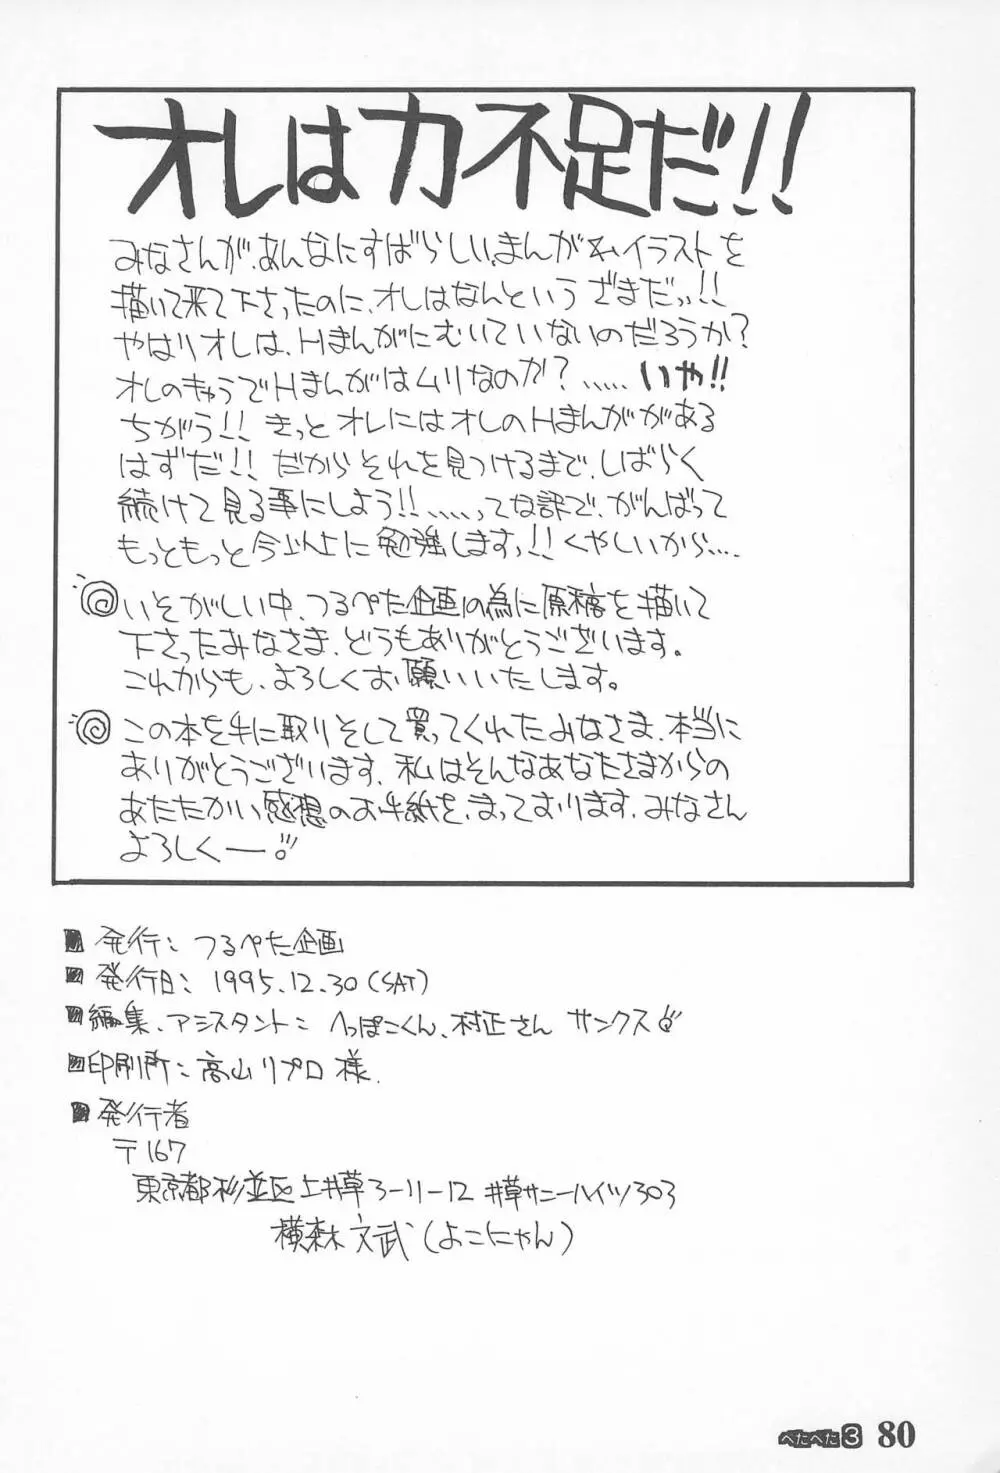 オレは力不足だ!!
みなさんが、あんなにすばらしい、まんがやイラストを
描いて来て下さったのに、オレはなんというざまだッ!!
やはりオレは、Hまんがにむいていないのだろうか?
オレのキャラでHまんがはムリなのか?……いや!!
ちがう!!きっとオレにはオレのHまんががある
はずだ!!だからそれを見つけるまで、しばらく
続けて見る事にしよう!!……ってな訳で、がんばって
もっともっと今以上に勉強しますッ!!くやしいから…
いそがしい中、つるぺた企画の為に原稿を描いて
下さったみなさま、どうもありがとうございます。
これからも、よろしくお願いいたします。
この本を手に取りそして買ってくれたみなさま、本当に
ありがとうございます、私はそんなあなたさまからの
あたたかい感想のお手紙を、まっております、みなさん
よろしくー!
■発行:つるぺた企画
■発行日:1995.12.30(SAT)
■編集、アシスタント:へっぽこくん、村正さん サンクス
■印刷所:高山リプロ様.
■発行者
〒167
東京都杉並区上井草3-11-12 井草サニーハイツ303
横森文武(よこにゃん)
ぺたぺた3 80